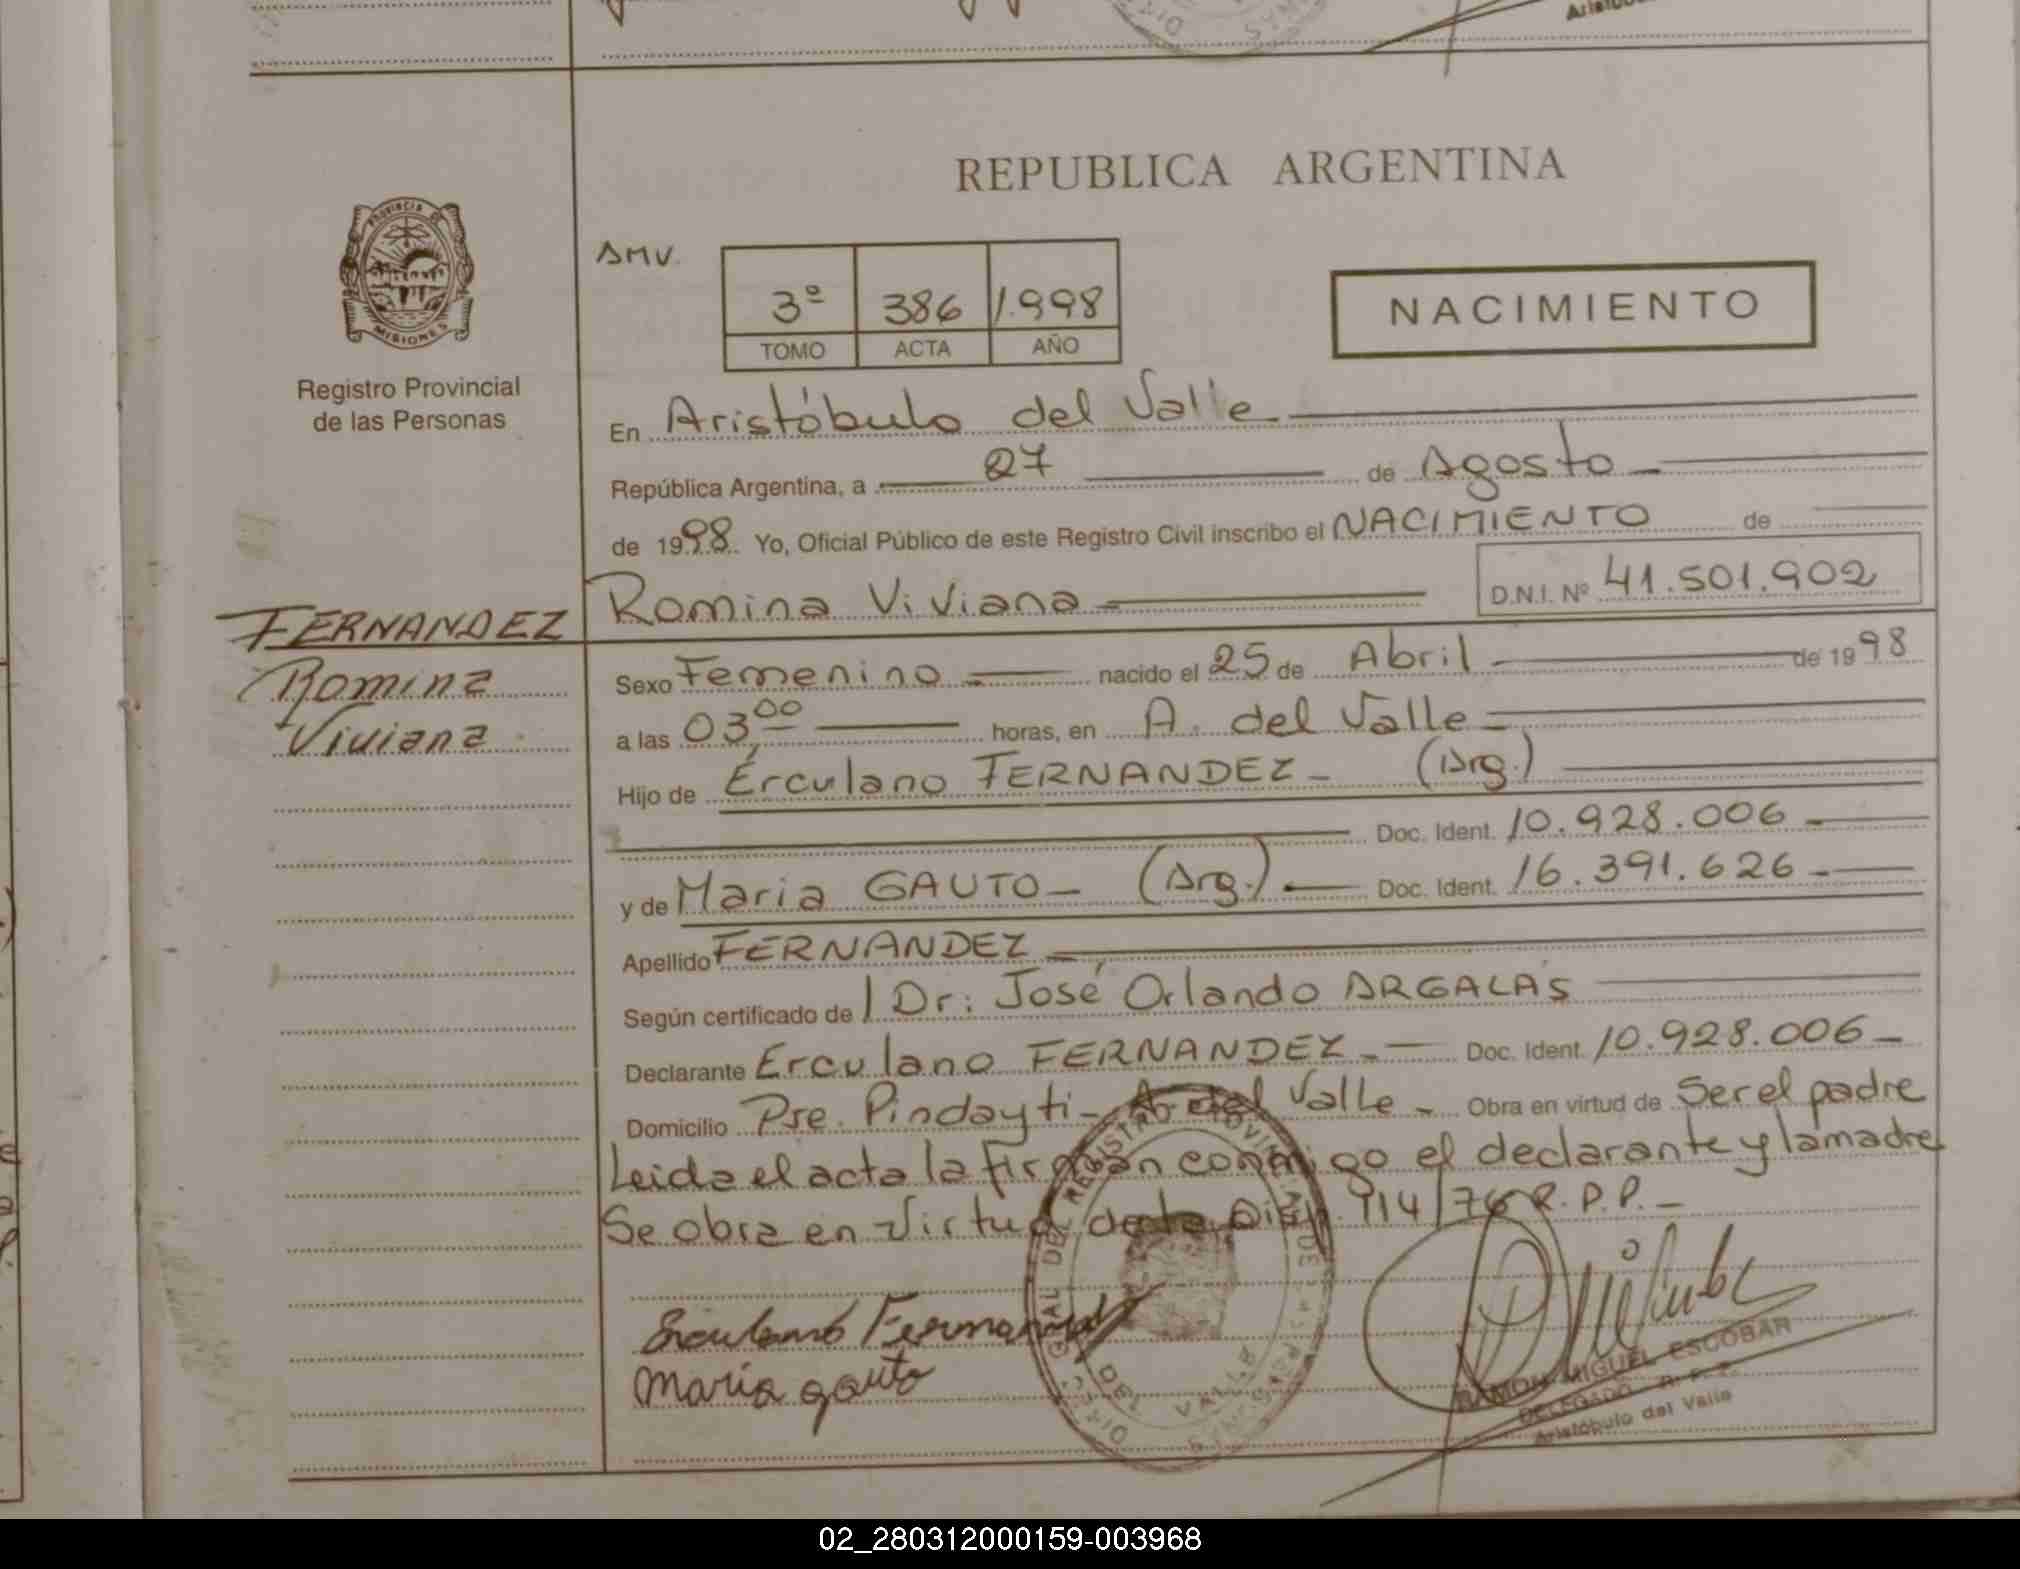 Aristóbu
REPUBLICA ARGENTINA
Provincia de
MISIONES
Registro Provincial
de las Personas
AMV.
3º 386 1.998
TOMO ACTA AÑO
NACIMIENTO
En Aristóbulo del Valle
República Argentina, a 27 de Agosto
de 1998. Yo, Oficial Público de este Registro Civil inscribo el NACIMIENTO de
Romina Viviana D.N.I. Nº 41.501.902
FERNANDEZ
Romina
Viviana
Sexo Femenino nacido el 25 de Abril de 1998
a las 03,00 horas, en A. del Valle
Hijo de Erculano FERNANDEZ (Arg.)
Doc. Ident. 10.928.006
y de Maria GAUTO (Arg.) Doc. Ident. 16.391.626
Apellido FERNANDEZ
Según certificado de Dr: José Orlando ARGALAS
Declarante Erculano FERNANDEZ Doc. Ident. 10.928.006
Domicilio Pje. Pindayti - A. del Valle Obra en virtud de Ser el padre
Leida el acta la firman conmigo el declarante y la madre
Se obra en virtud de la Disp. 914/76 R.P.P.
Erculano Fernandez
maria gauto
DEL REGISTRO PROVINCIAL DE LAS PERSONAS
DEL VALLE
RAMON MIGUEL ESCOBAR
DELEGADO
Aristóbulo del Valle
02_280312000159-003968